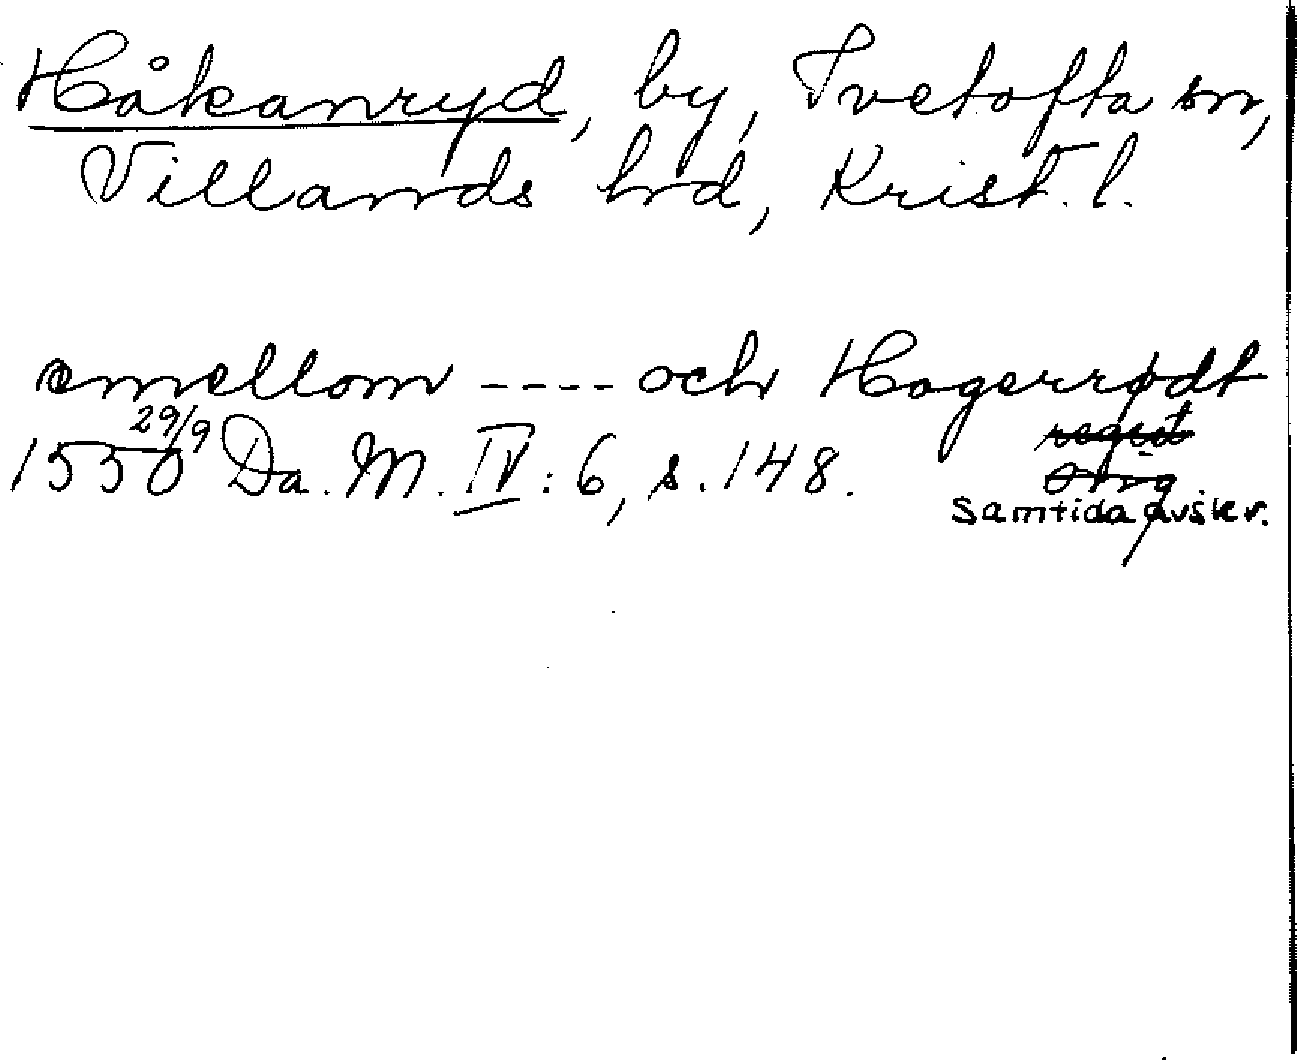 Håkanryd, by, Ivetofta sn,
Villands hrd, Krist. l.
emellom ---- och Hogerrødt
1550 29/9 Da. M. IV: 6, s. 148.
orig
samtida avskr.